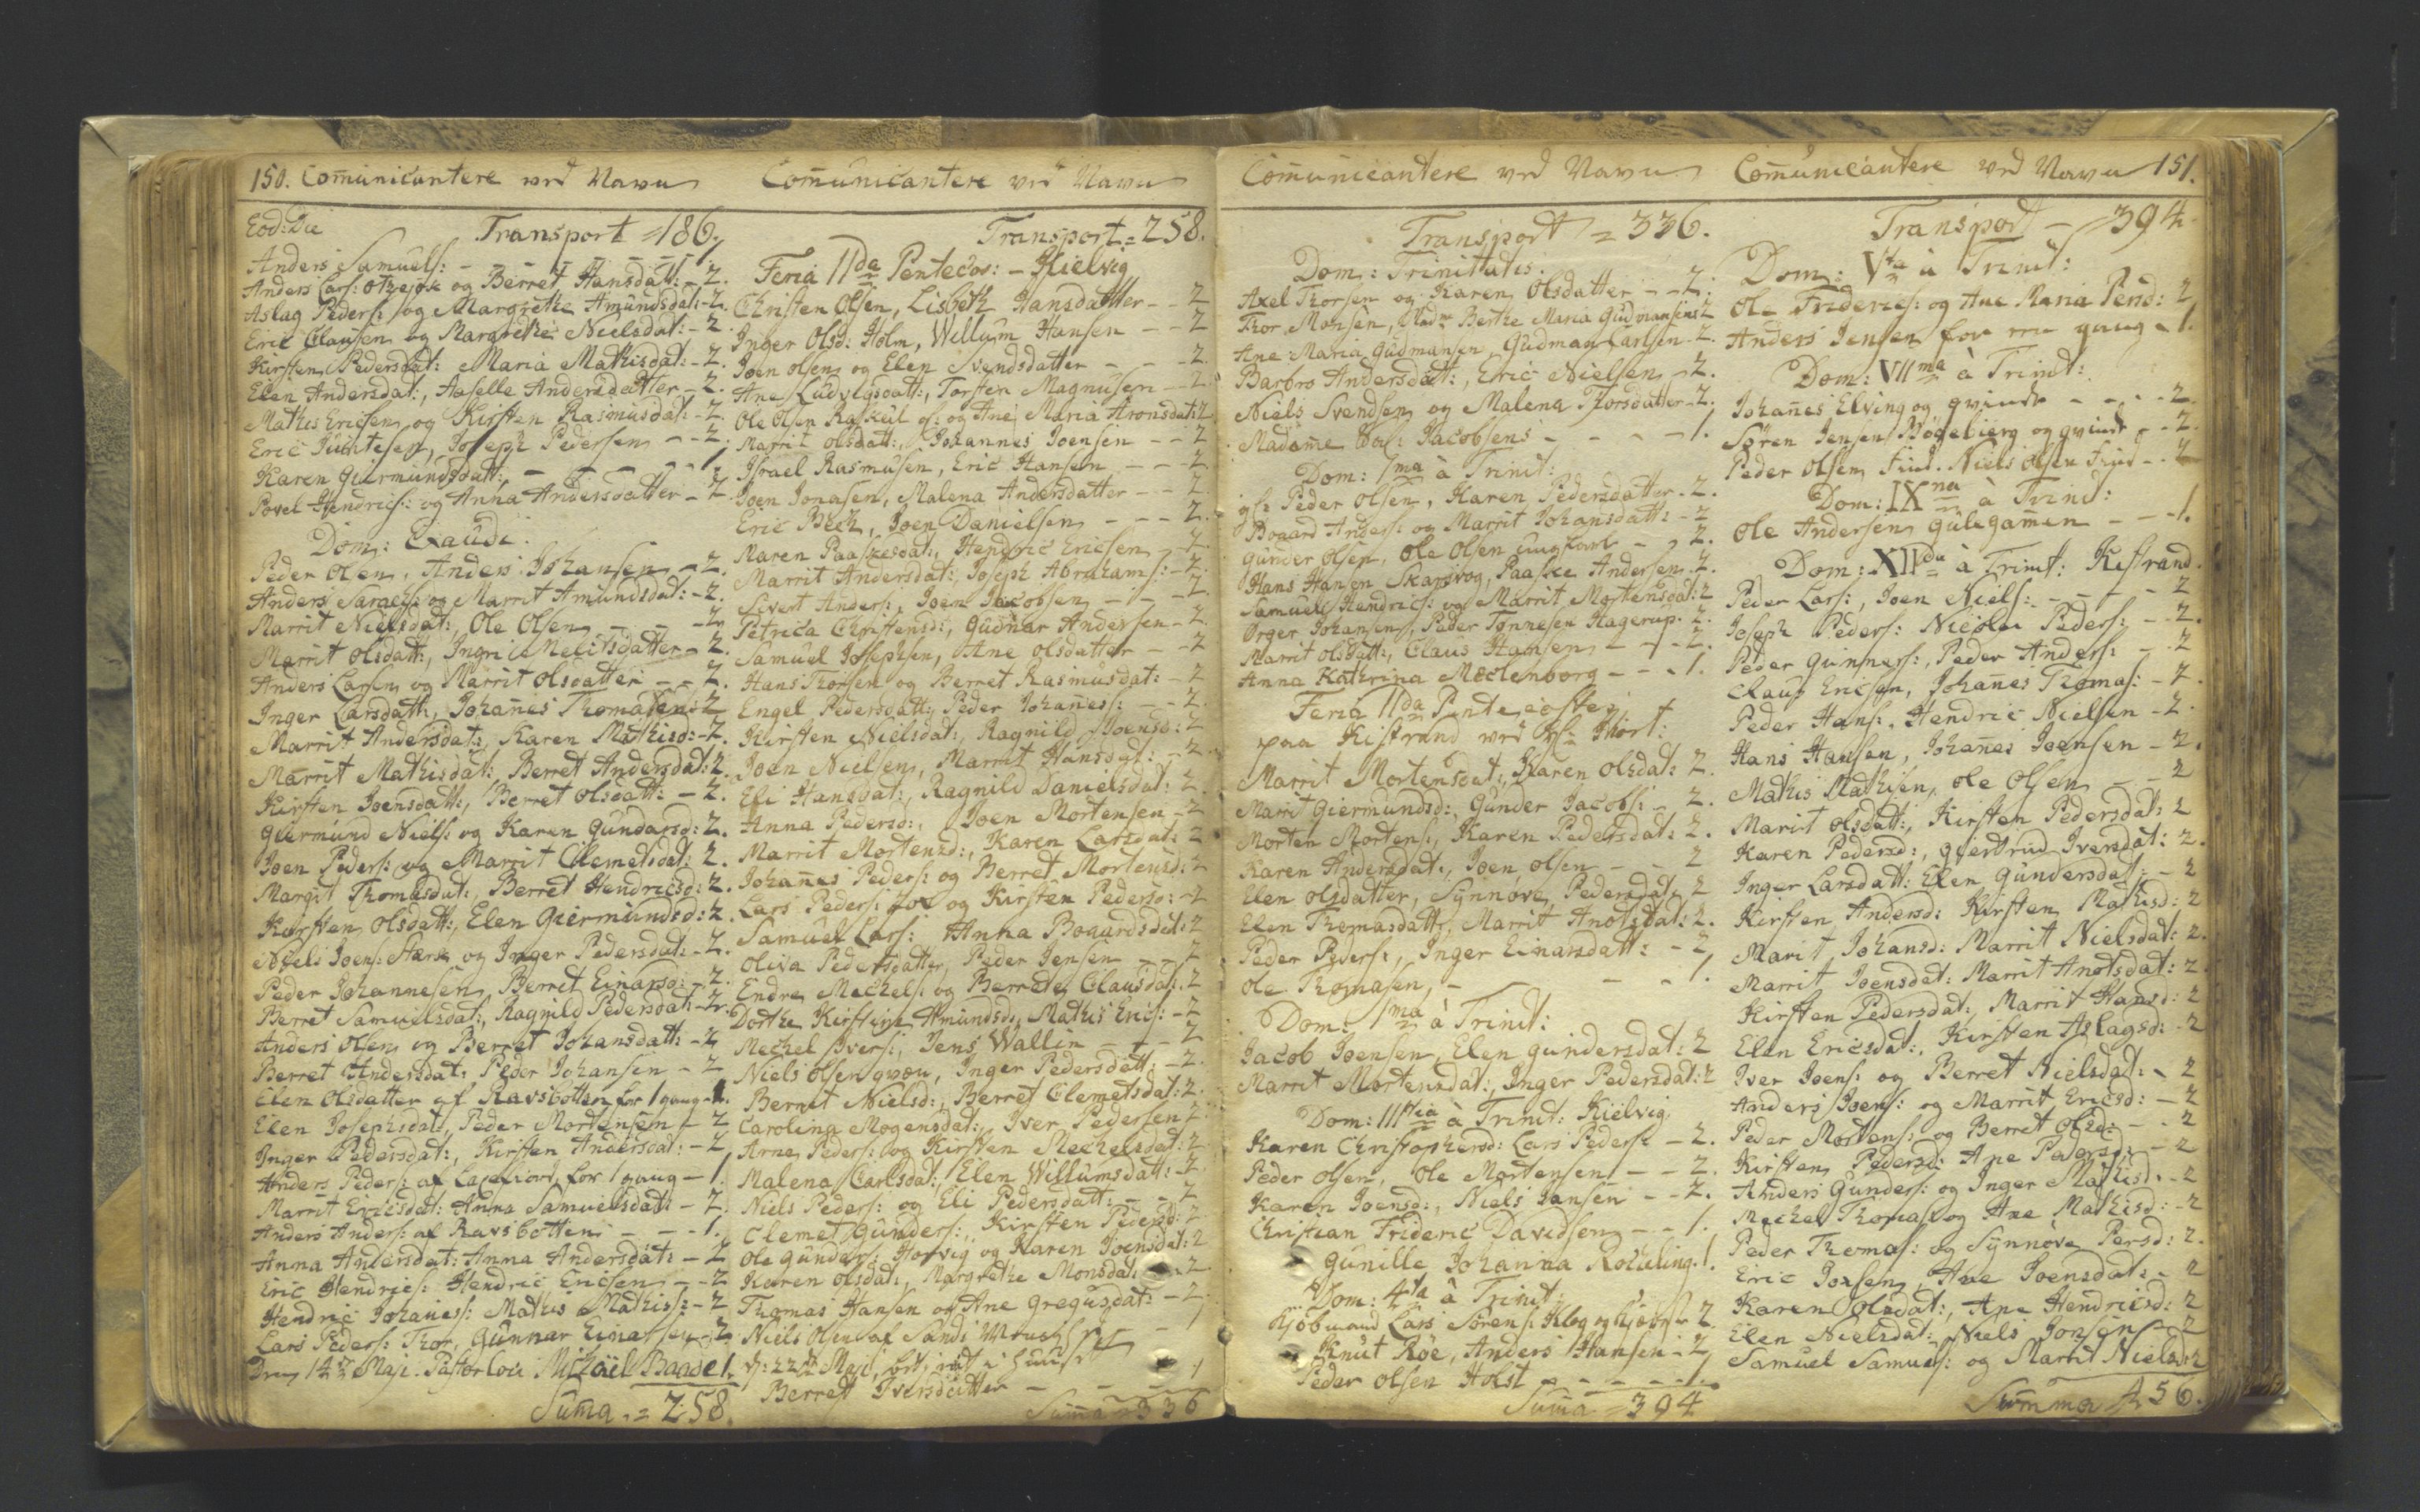 150. Com̄unicantere ved Navn
Eod: Die Transport = 186.
Anders Samuels: - - - - - 1.
Anders Lars: og Berret Hansdat: - 2.
Aslag Peders: og Margrethe Amundsdat: - 2.
Eric Clausen og Margrethe Nielsdat: - 2.
Kirsten Pedersdat: Maria Mathisdat: - 2.
Elen Andersdat:, Aaselle Andersdatter - 2.
Mathis Ericsen og Kirsten Rasmusdat: - 2.
Eric Joseph Pedersen - - 2.
Karen Giermundsdatt: - - - - 1.
Povel Hendrics: og Anna Andersdatter - 2.
Dom: Exaudi.
Peder Olsen, Anders Johansen - 2.
Anders og Marrit Amundsdat: - 2.
Marrit Nielsdat:, Ole Olsen - - - 2.
Marrit Olsdatt:, Ingri - 2.
Anders Larsen og Marrit Olsdatter - - 2.
Inger Larsdatt:, Johan̄es Thomasen 2
Marrit Andersdat:, Karen Mathisd: - 2.
Marrit Mathisdat:, Berret Andersdat: 2.
Kirsten Joensdatt:, Berret Olsdatt: - 2.
Giermund Niels: og Karen Gundersd: 2.
Joen Peders: og Marrit Clemetsdat: 2.
Margit Thomasdat:, Berret Hendricsd: 2.
Kirsten Olsdatt:, Elen Giermundsd: 2.
Niels Joens: og Inger Pedersdat: - 2.
Peder Johannesen, Berret Einarsd: - 2.
Berret Samuelsdat:, Ragnild Pedersdat: - 2.
Anders Olsen og Berret Johansdatt: - 2
Berret Andersdat: Peder Johansen - 2
Elen Olsdatter af Ravsbotten for 1 gang - 1.
Elen Josephsdat:, Peder Mortensen - 2
Inger Pedersdat:, Kirsten Andersdat: - 2
Anders Peders: af for 1 gang - 1.
Marrit Ericsdat: Anna Samuelsdat: - 2.
Anders Anders: af Ravsbotten - - - 1.
Anna Andersdat: Anna Andersdat: - 2
Eric Hendrics: Hendric Ericsen - - 2
Hendric Johan̄es: Mathis Mathis: - 2
Lars Peders: Thor, Gunnar Einarsen - 2
Den 14de Maji. Pastor Loci Michaël Baade 1.
Sum̄a = 258.
Com̄unicantere ved Navn
Transport = 258.
Feria IIda Pentecos: - Kielvig
Christen Olsen, Lisbeth Hansdatter - - 2
Inger Olsd: Holm, Willum Hansen - - 2
Joen Olsen og Elen Svendsdatter - - - 2.
Ane Ludvigsdatt:, Torsten Magnusen - - 2
Ole Olsen og Ane Maria Aronsdat: 2
Marrit Olsdatt:, Johannes Joensen - - 2
Israel Rasmusen, Eric Hansen - - - 2.
Joen Jonasen, Malena Andersdatter - - 2.
Eric Beck, Joen Danielsen - - - 2.
Maren Paaskesdat:, Hendric Ericsen - 2.
Marrit Andersdat:, Joseph Abrahams: - 2.
Sivert Anders:, Joen Jacobsen - - - 2.
Petrica Christensd:, Gudnar Andersen - 2.
Samuel Josephsen, Ane Olsdatter - - 2
Hans Thorsen og Berret Rasmusdat: - 2
Engel Pedersdatt:, Peder Johanes: - - 2.
Kirsten Nielsdat:, Ragnild Joensd: 2
Joen Nielsen, Marrit Hansdat: - 2.
Eli Hansdat:, Ragnild Danielsdat: 2.
Anna Pedersd:, Joen Mortensen - 2
Marrit Mortensd:, Karen Larsdat: 2
Johan̄es Peders: og Berret Mortensd: 2
Lars Peders: og Kirsten Pedersd: - 2
Samuel Lars: Anna Bogardsdat: 2
Oliva Pedersdatter, Peder Jensen - - 2
Endre Mechels: og Berrete Clausdat: 2
Dorthe Kirstine Amundsd:, Mathis Erics: - 2
Mechel Ivers:, Jens Wallin - - - 2
Niels Olsen, Inger Pedersdatt: - 2.
Berret Nielsd:, Berret Clemetsdat: 2.
Carolina Mogensdat:, Iver Pedersen 2
Arne Peders: og Kirsten Mechelsdat: 2
Malena Carlsdat:, Elen Willumsdatt: 2
Niels Peders: og Eli Pedersdatt: - - 2
Clemet Gunders:, Kirsten Pedersd: 2
Ole Gunders: Horvig og Karen Joensdat: 2
Karen Olsdat:, Margrethe Monsdat: 2
Thomas Hansen og Ane Gregusdat: - 2
Niels Olsen af Sandi - 1
d: 22de Maji, i huuset
Berret Iversdatter - - - - 1
Sum̄a = 336
Com̄unicantere ved Navn
Transport = 336.
Dom: Trinitatis.
Axel Thorsen og Karen Olsdatter - - 2.
Thor Monsen, Madm Berthe Maria Gudmansens 2
Ane Maria Gudmansen, Gudman Carlsen - 2.
Barbro Andersdatt:, Eric Nielsen - 2.
Niels Svendsen og Malena Thorsdatter - 2.
Madam̄e Jacobsens - - - - 1.
Dom: 1ma à Trinit:
Peder Olsen, Karen Pedersdatter - 2.
Bogard Anders: og Marrit Johansdatt: - 2
Gunder Olsen, Ole Olsen - 2.
Hans Hansen Skarsvog, Paaske Andersen - 2.
Samuel Hendrics: og Marrit Mortensdat: 2
Örger Johansen, Peder Tønnesen Hagerup. 2.
Marrit Olsdatt:, Claus Hansen - - - 2.
Anna Kathrina Mecklenborg - - - 1.
Feria IIda Pentecostes
paa Kistrand ved Hr: Hiort:
Marrit Mortensdat:, Karen Olsdat: 2.
Marit Giermundsd:, Gunder Jacobs: - 2.
Morten Mortens:, Karen Pedersdat: 2.
Karen Andersdat:, Joen Olsen - - 2
Elen Olsdatter, Synnøve Pedersdat: 2
Elen Thomasdatt:, Marrit Anotsdat: 2.
Peder Peders:, Inger Einarsdatt: - 2
Ole Thomasen, - - - - 1.
Dom: 1ma à Trinit:
Jacob Joensen, Elen Gundersdat: 2
Marrit Mortensdat:, Inger Pedersdat: 2
Dom: IIItia à Trinit: Kielvig
Karen Christophersd: Lars Peders: - 2.
Peder Olsen, Ole Mortensen - - 2.
Karen Joensd:, Niels Jansen - - 2.
Christian Frideric Davidsen - - 1.
Gunille Johanna Röchling. 1.
Dom: 4ta à Trinit:
Kjøbmand Lars Sørens: Klog og 2.
Knut Röe, Anders Hansen - 2
Peder Olsen Holst - - - - 1.
Sum̄a = 394
Com̄unicantere ved Navn 151.
Transport - 394
Dom: Vta à Trinit:
Ole Friderics: og Ane Maria Persd: 2
Anders Jensen for en gang - 1.
Dom: VIIma à Trinit:
Johan̄es Elving og qvinde - - - 2
Søren Jensen Bogelierg og qvinde - - 2.
Peder Olsen Find. Niels Olsen Find - - 2
Dom: IXna à Trinit:
Ole Andersen Gulegam̄en - - - 1.
Dom: XIIda à Trinit: Kistrand.
Peder Lars:, Joen Niels: - - - - 2
Joseph Peders: Nicolai Peders: - - 2.
Peder Gunners:, Peder Anders: - - 2
Claus Ericsen, Johan̄es Thomas: - 2.
Peder Hans:. Hendric Nielsen - 2.
Hans Hansen, Johan̄es Joensen - 2.
Mathis Mathisen, Ole Olsen - - 2
Marit Olsdatt:, Kirsten Pedersdat: 2
Karen Pedersd:, Giertrud Iversdat: 2.
Inger Larsdatt: Elen Gundersdat: - 2
Kirsten Andersd: Kirsten Mathisd: 2
Marit Johansd: Marrit Nielsdat: 2.
Marrit Joensdat: Marrit Anotsdat: 2.
Kirsten Pedersdat:, Marrit Hansd: 2
Elen Ericsdat:, Kirsten Aslagsd: - 2
Iver Joens: og Berret Nielsdat: - 2
Anders Joens: og Marrit Ericsd: - 2
Peder Mortens: og Berret Olsd: - - 2
Kirsten Pedersd: Ane Pedersd: - - 2
Anders Gunders: og Inger Mathisd: - 2
Mechel Thomas: og Ane Mathisd: - 2
Peder Thomas: og Synnøve Persd: 2.
Eric Joxsen, Ane Joensdat: - 2
Karen Olsdat:, Ane Hendricsd: 2
Elen Nielsdat: Niels Jonsen - 2
Samuel Samuels: og Marrit Nielsd: 2
Sum̄ma 456.